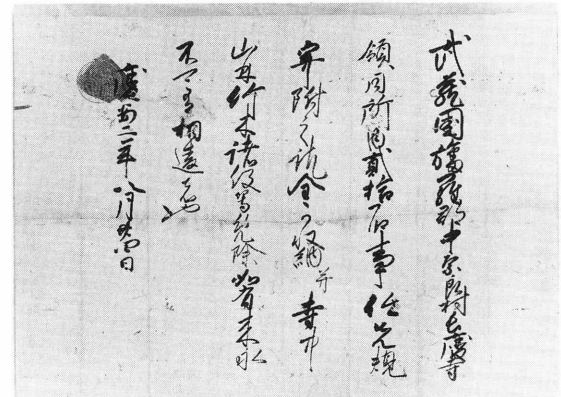 武蔵國幡羅郡中奈良村長慶寺
領同所内貳拾石事任先規
寄附之訖全可収納并寺中
山林竹木諸役等免除如有来永
不可有相違者也
慶安二年八月廿四日